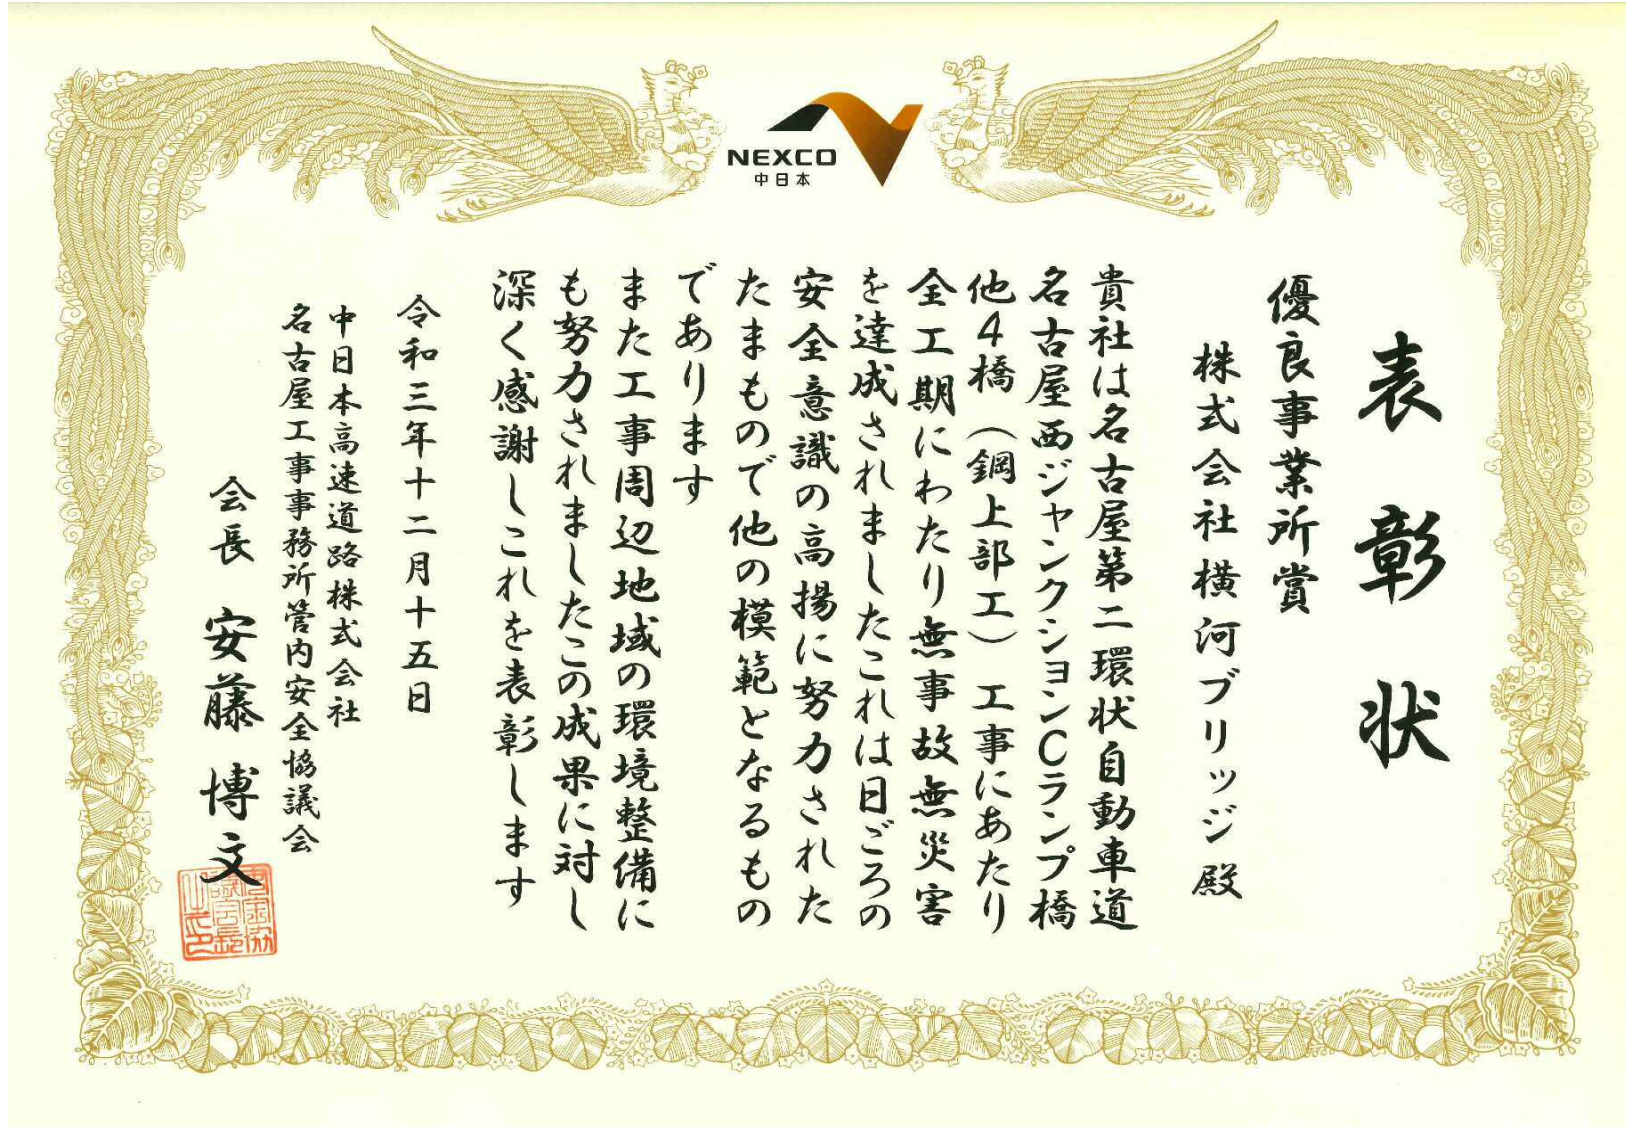 NEXCO
中日本
表彰状
優良事業所賞
株式会社横河ブリッジ殿
貴社は名古屋第二環状自動車道
名古屋西ジャンクションCランプ橋
他4橋（鋼上部工）工事にあたり
全工期にわたり無事故無災害
を達成されましたこれは日ごろの
安全意識の高揚に努力された
たまもので他の模範となるもの
であります
また工事周辺地域の環境整備に
も努力されましたこの成果に対し
深く感謝しこれを表彰します
令和三年十二月十五日
中日本高速道路株式会社
名古屋工事事務所管内安全協議会
会長 安藤博文